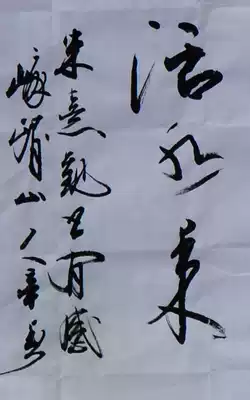 活水来
朱熹观书有感
峨眉山人